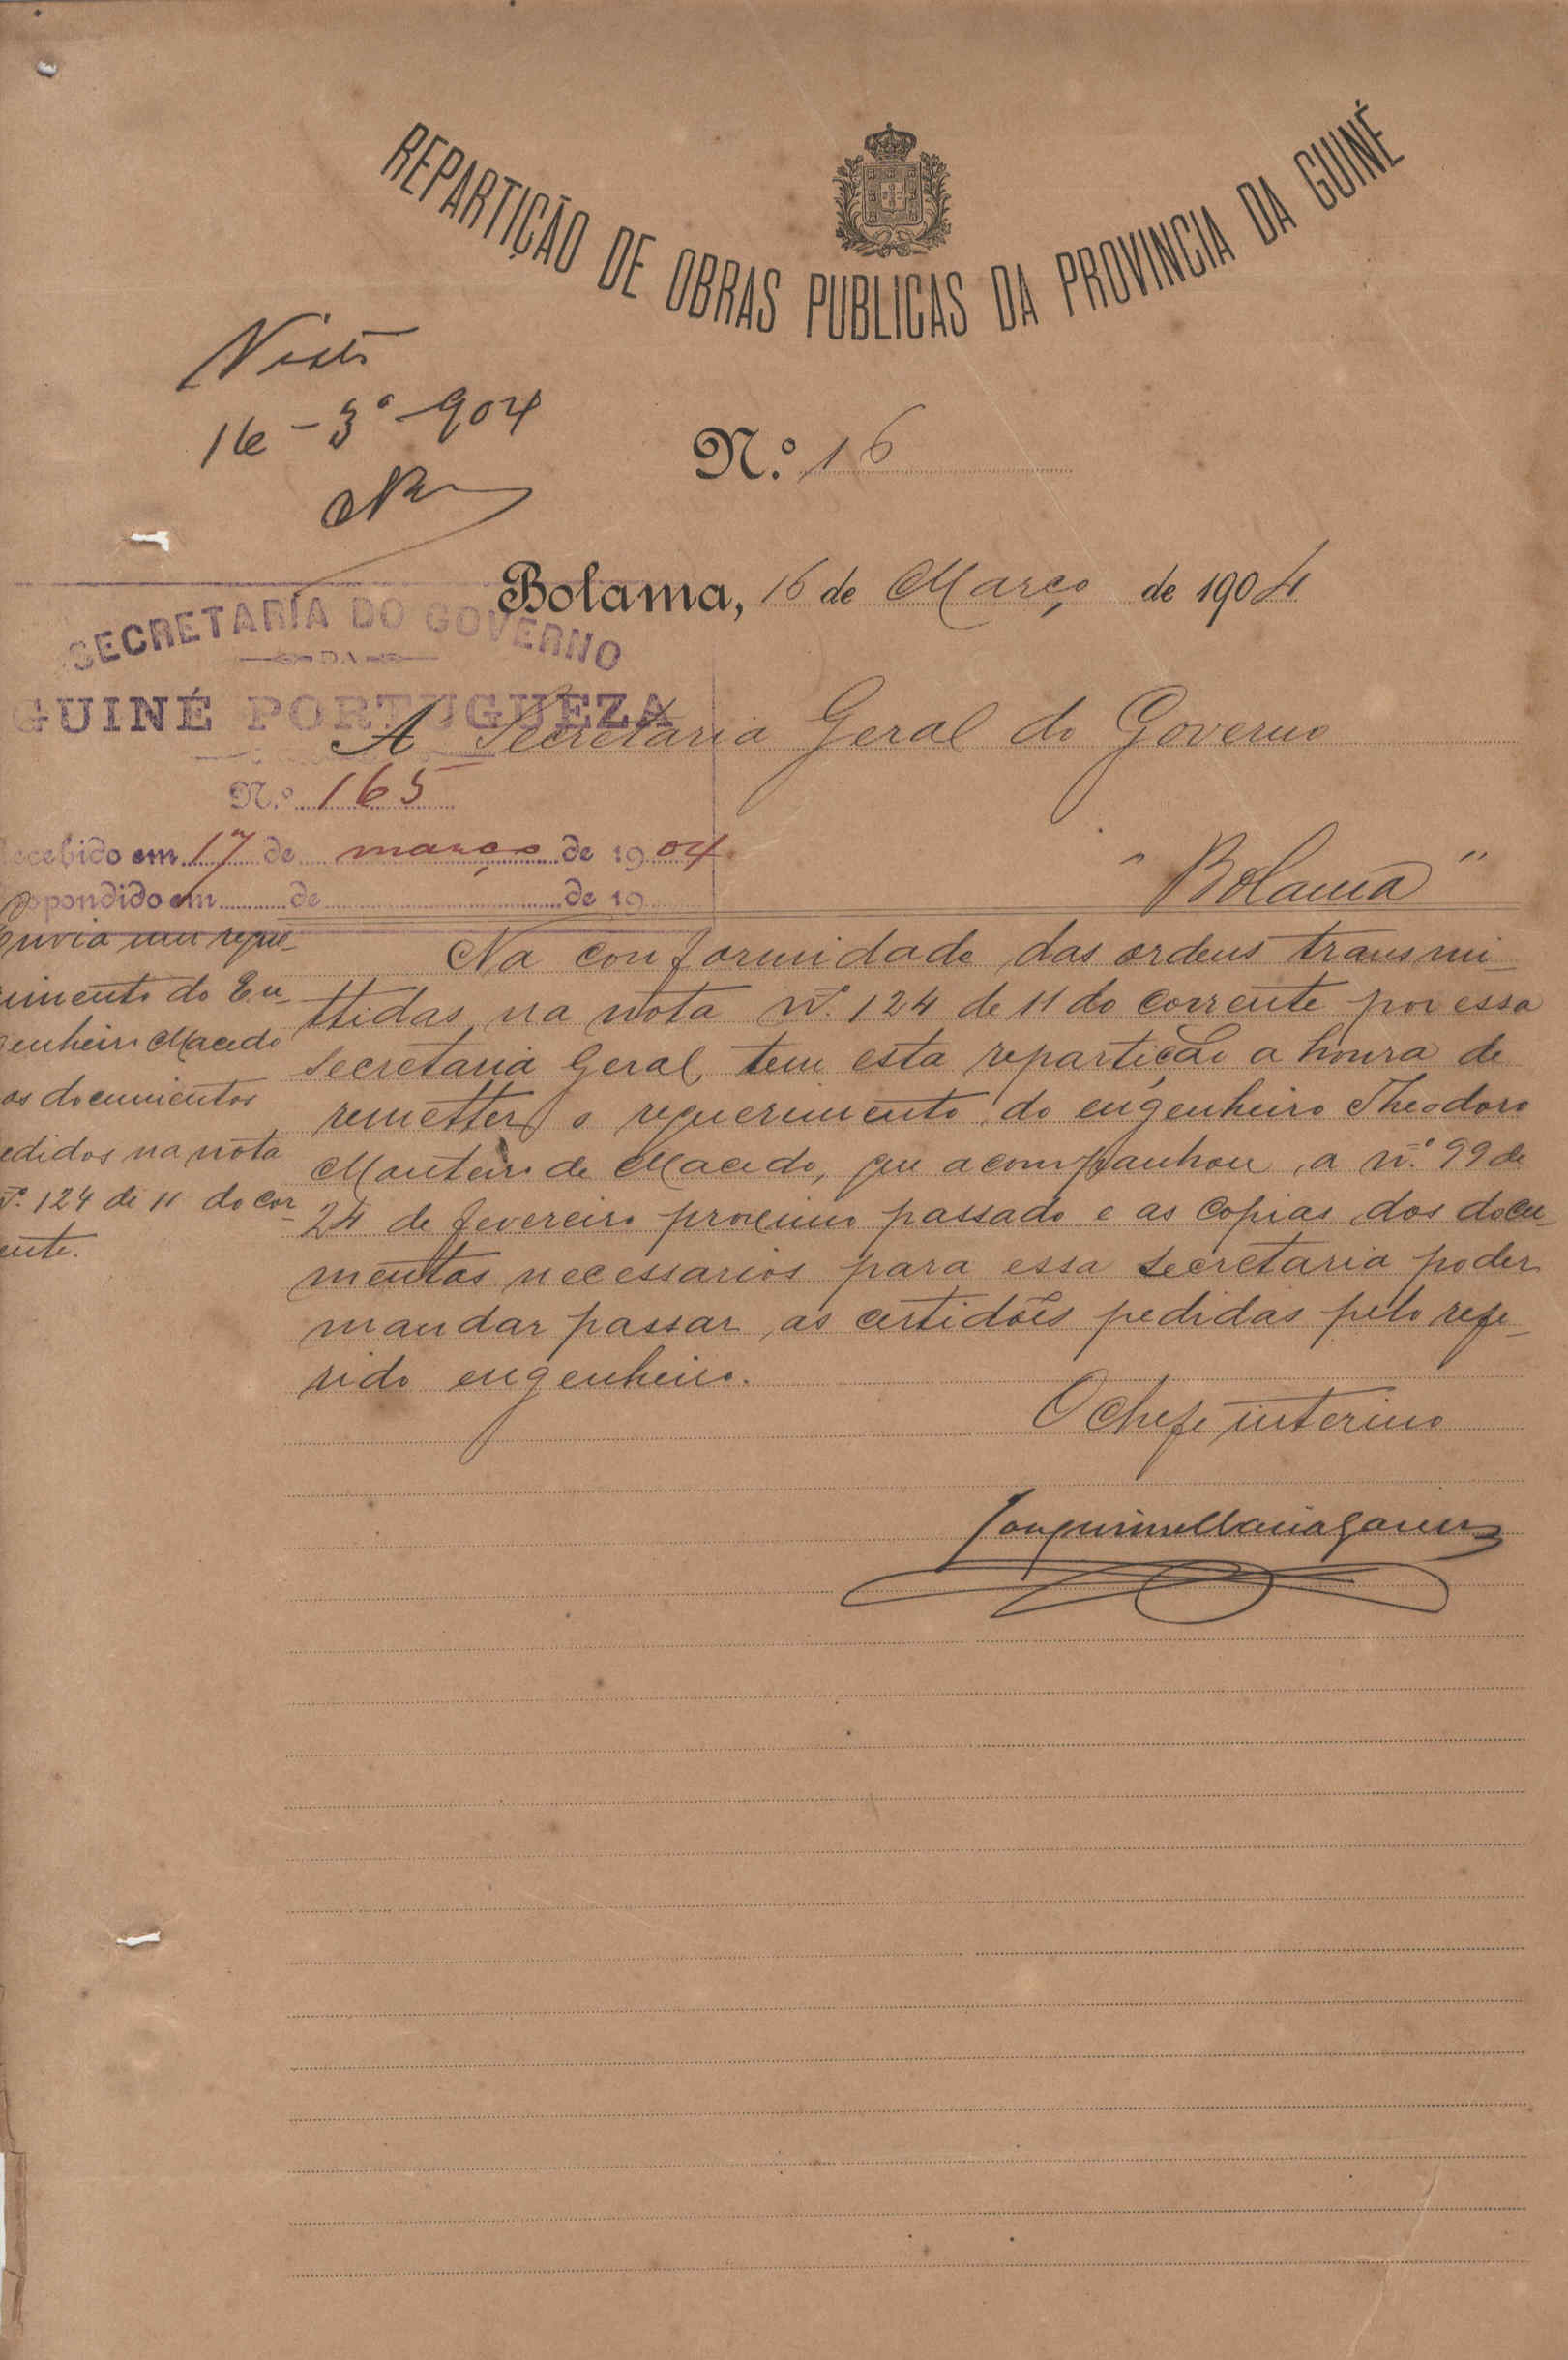 REPARTIÇÃO DE OBRAS PUBLICAS DA PROVINCIA DA GUINÉ
Visto
16-3º-904
N.º 16
Bolama, 16 de Março de 1904
SECRETARIA DO GOVERNO
DA
GUINÉ PORTUGUEZA
N.º 165
ecebido em 17 de março de 1904
spondido em de de 19
A Secretaria Geral do Governo
"Bolama"
Envia um reque-
imento do En-
genheiro Macedo
os documentos
edidos na nota
nº. 124 de 11 do cor-
ente.
Na conformidade das ordens transmi-
ttidas, na nota nº. 124 de 11 do corrente por essa
Secretaria Geral, tem esta repartição a honra de
remetter o requerimento do engenheiro Theodoro
Monteiro de Macedo, que acompanhou a nº. 99 de
24 de fevereiro proximo passado e as copias dos docu-
mentos necessarios para essa Secretaria poder
mandar passar as certidões pedidas pelo refe-
rido engenheiro.
O Chefe interino
Joaquim Maria